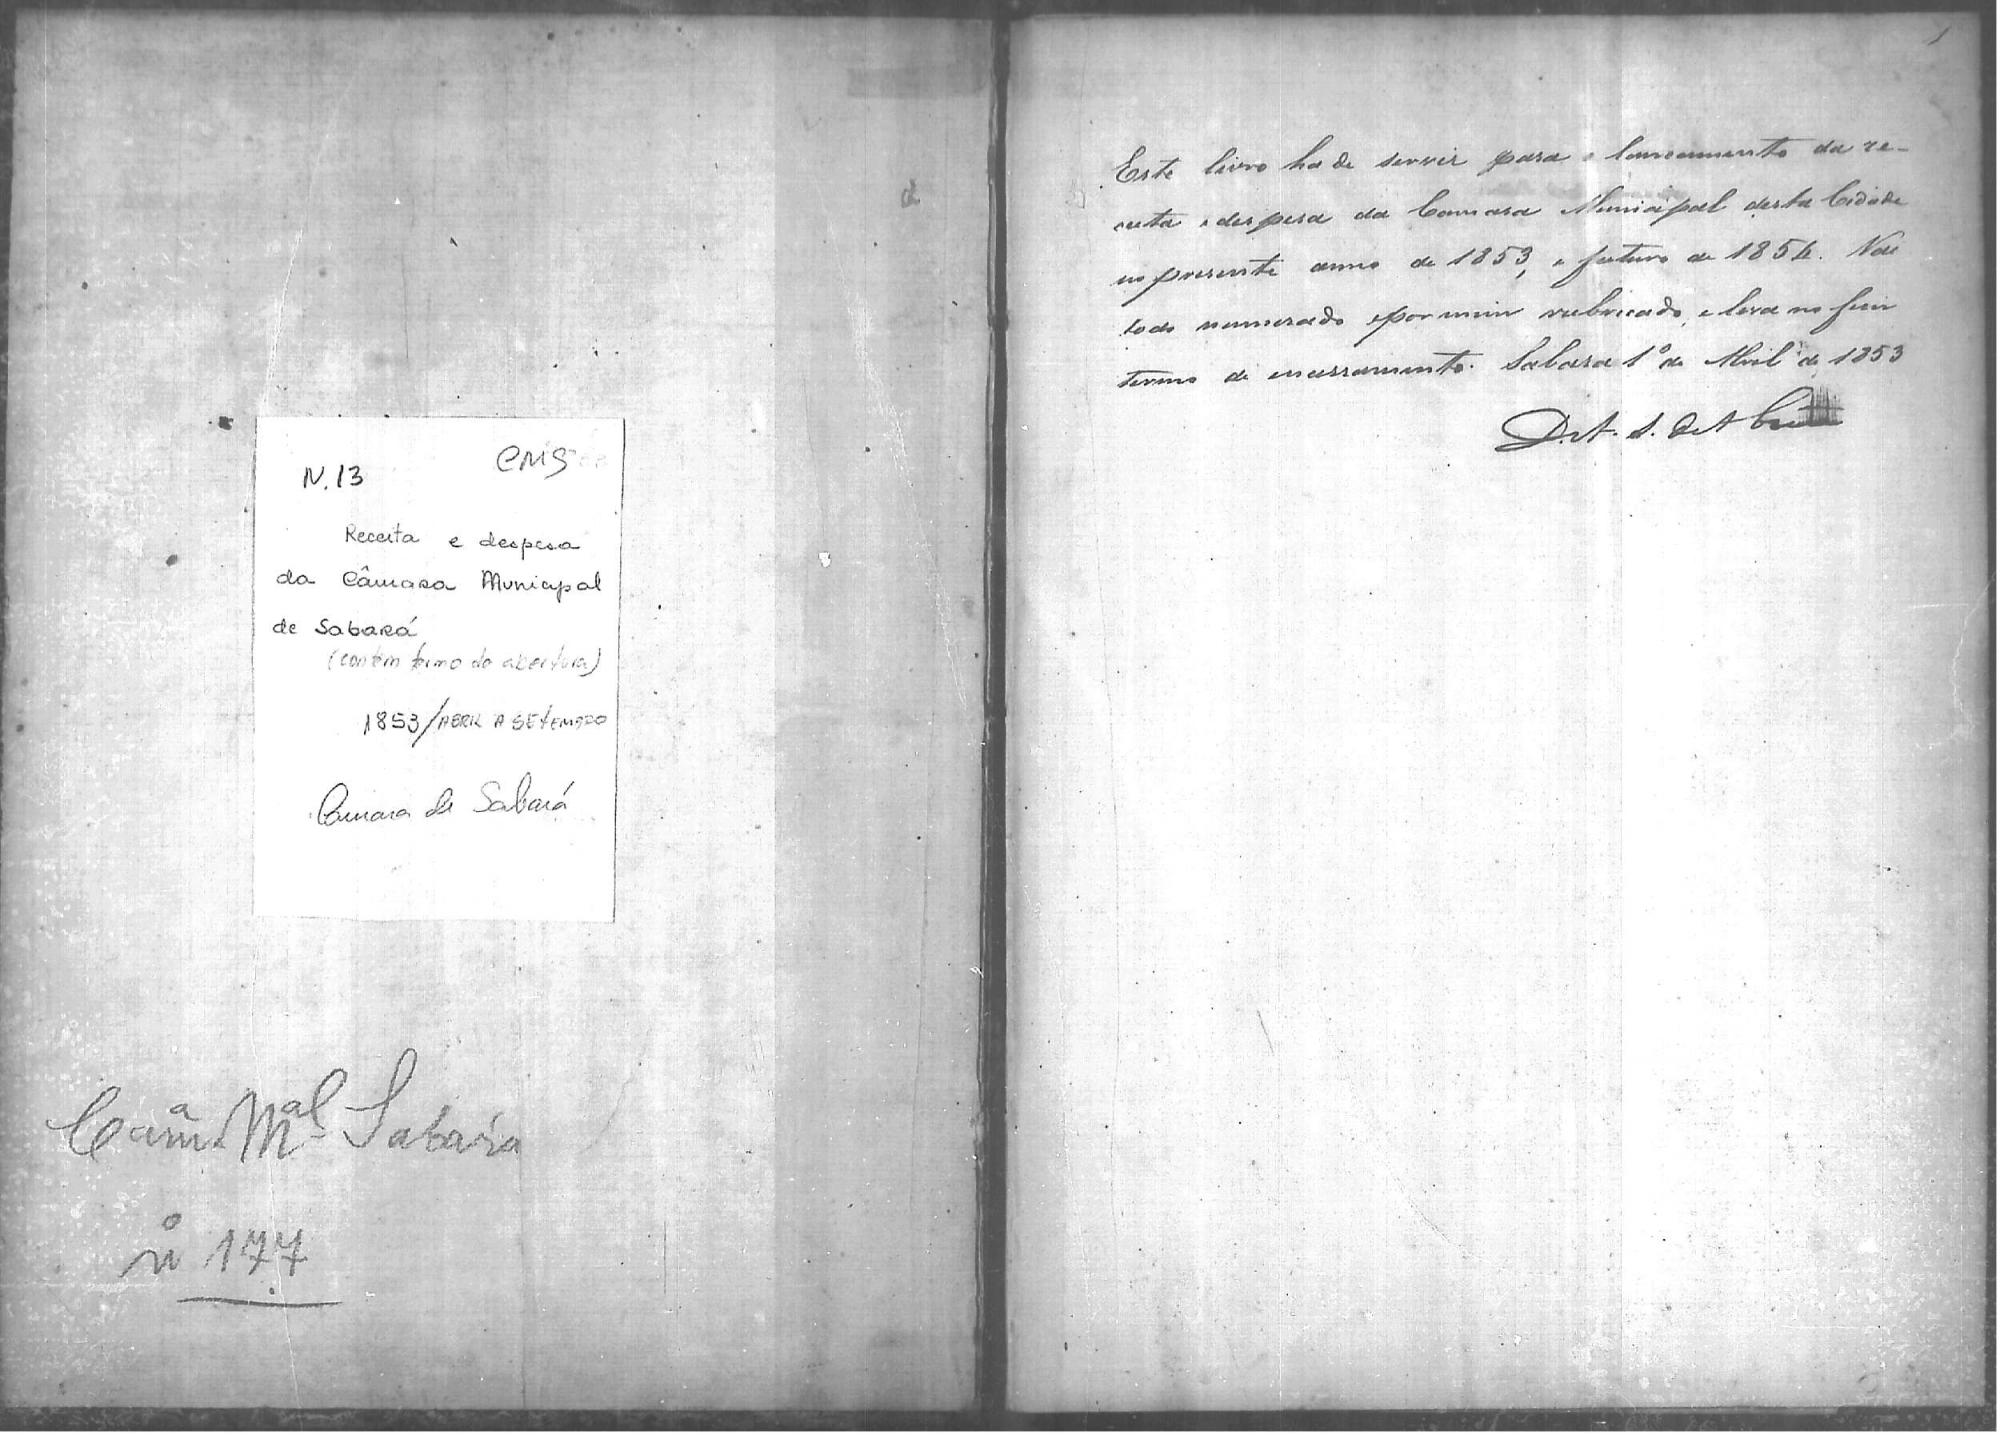 N. 13 CMS
Receita e despesa
da Câmara Municipal
de Sabará
(contém termo de abertura)
1853/ABRIL A SETEMBRO
Camara de Sabará
Camª Mal Sabará
nº 177
1
Este livro hade servir para o lancamento da re-
ceita e despesa da Camara Municipal desta Cidade
no presente anno de 1853, e futuro de 1854. Vae
todo numerado e por mim rubricado, e leva no fim
termo de encerramento. Sabara 1º de Abril de 1853